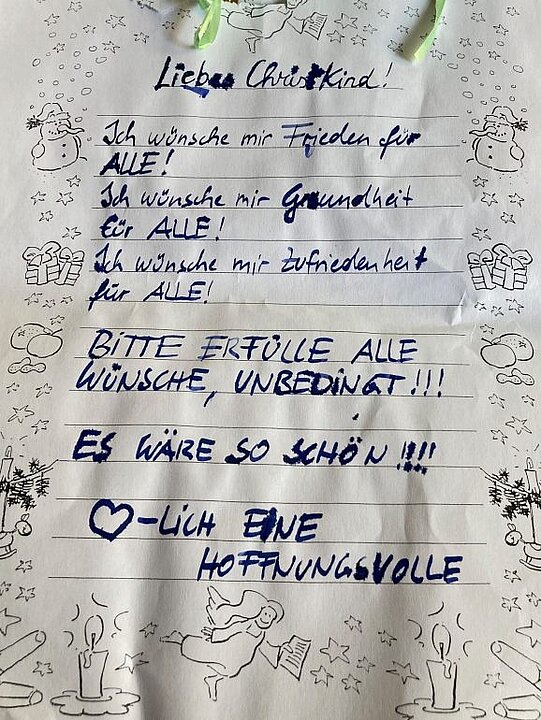 Liebes Christkind!
Ich wünsche mir Frieden für
ALLE!
Ich wünsche mir Gesundheit
für ALLE!
Ich wünsche mir Zufriedenheit
für ALLE!
BITTE ERFÜLLE ALLE
WÜNSCHE, UNBEDINGT!!!
ES WÄRE SO SCHÖN!!!!
♡-LICH EINE
HOFFNUNGSVOLLE